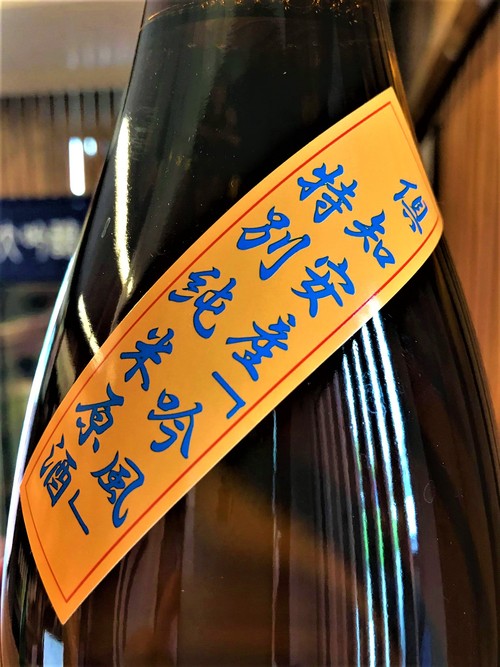 倶知安産「吟風」
特別純米原酒